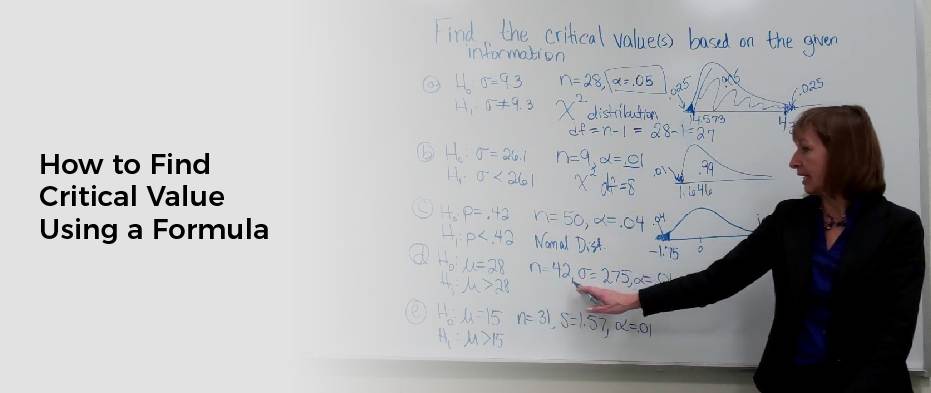 How to Find
Critical Value
Using a Formula
Find the critical value(s) based on the given
information
(a) H₀ σ=9.3 n=28, α=.05
H₁: σ≠9.3 χ² distribution
df=n-1 = 28-1=27
.025 .025
14.573
(b) H₀: σ=26.1 n=9, α=.01
H₁: σ<26.1 χ² df=8
.01 .99
1.646
(c) H₀ p=.42 n=50, α=.04
H₁: p<.42 Normal Dist.
.04
-1.75 0
(d) H₀: μ=28 n=42, σ=275, α=
H₁: μ>28
(e) H₀: μ=15 n=31, S=1.57, α=.01
H₁: μ>15